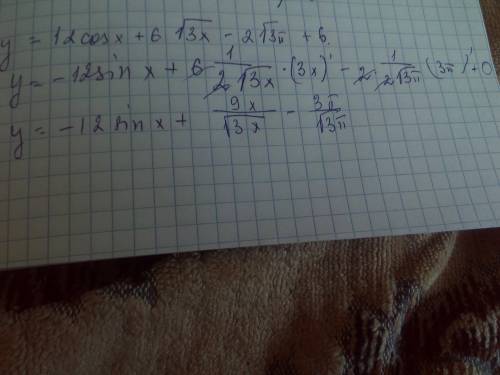 y = 12cosx + 6 √3x - 2√3π + 6.
y = -12sin x + 6 1/(2√3x) · (3x)' - 2 · 1/(2√3π) (3π)' + 0
y = -12 sin x + 9x/√3x - 3π/√3π